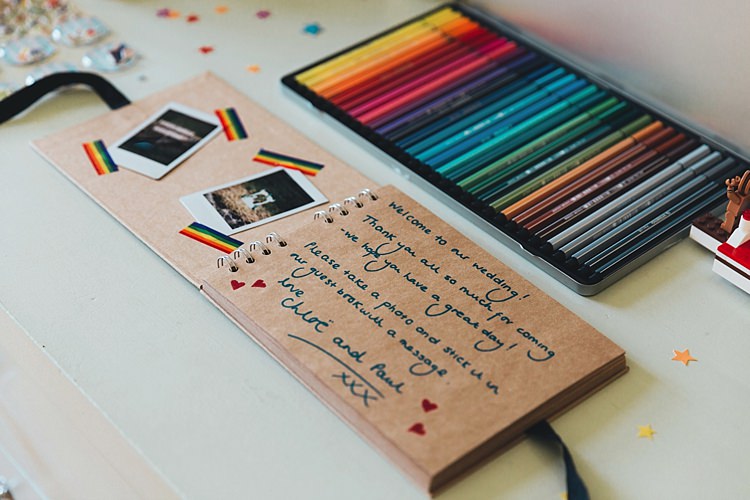 Welcome to our wedding!
Thank you all so much for coming
-we hope you have a great day!
Please take a photo and stick it in
our guest book with a message.
love
Chloë and Paul
xxx